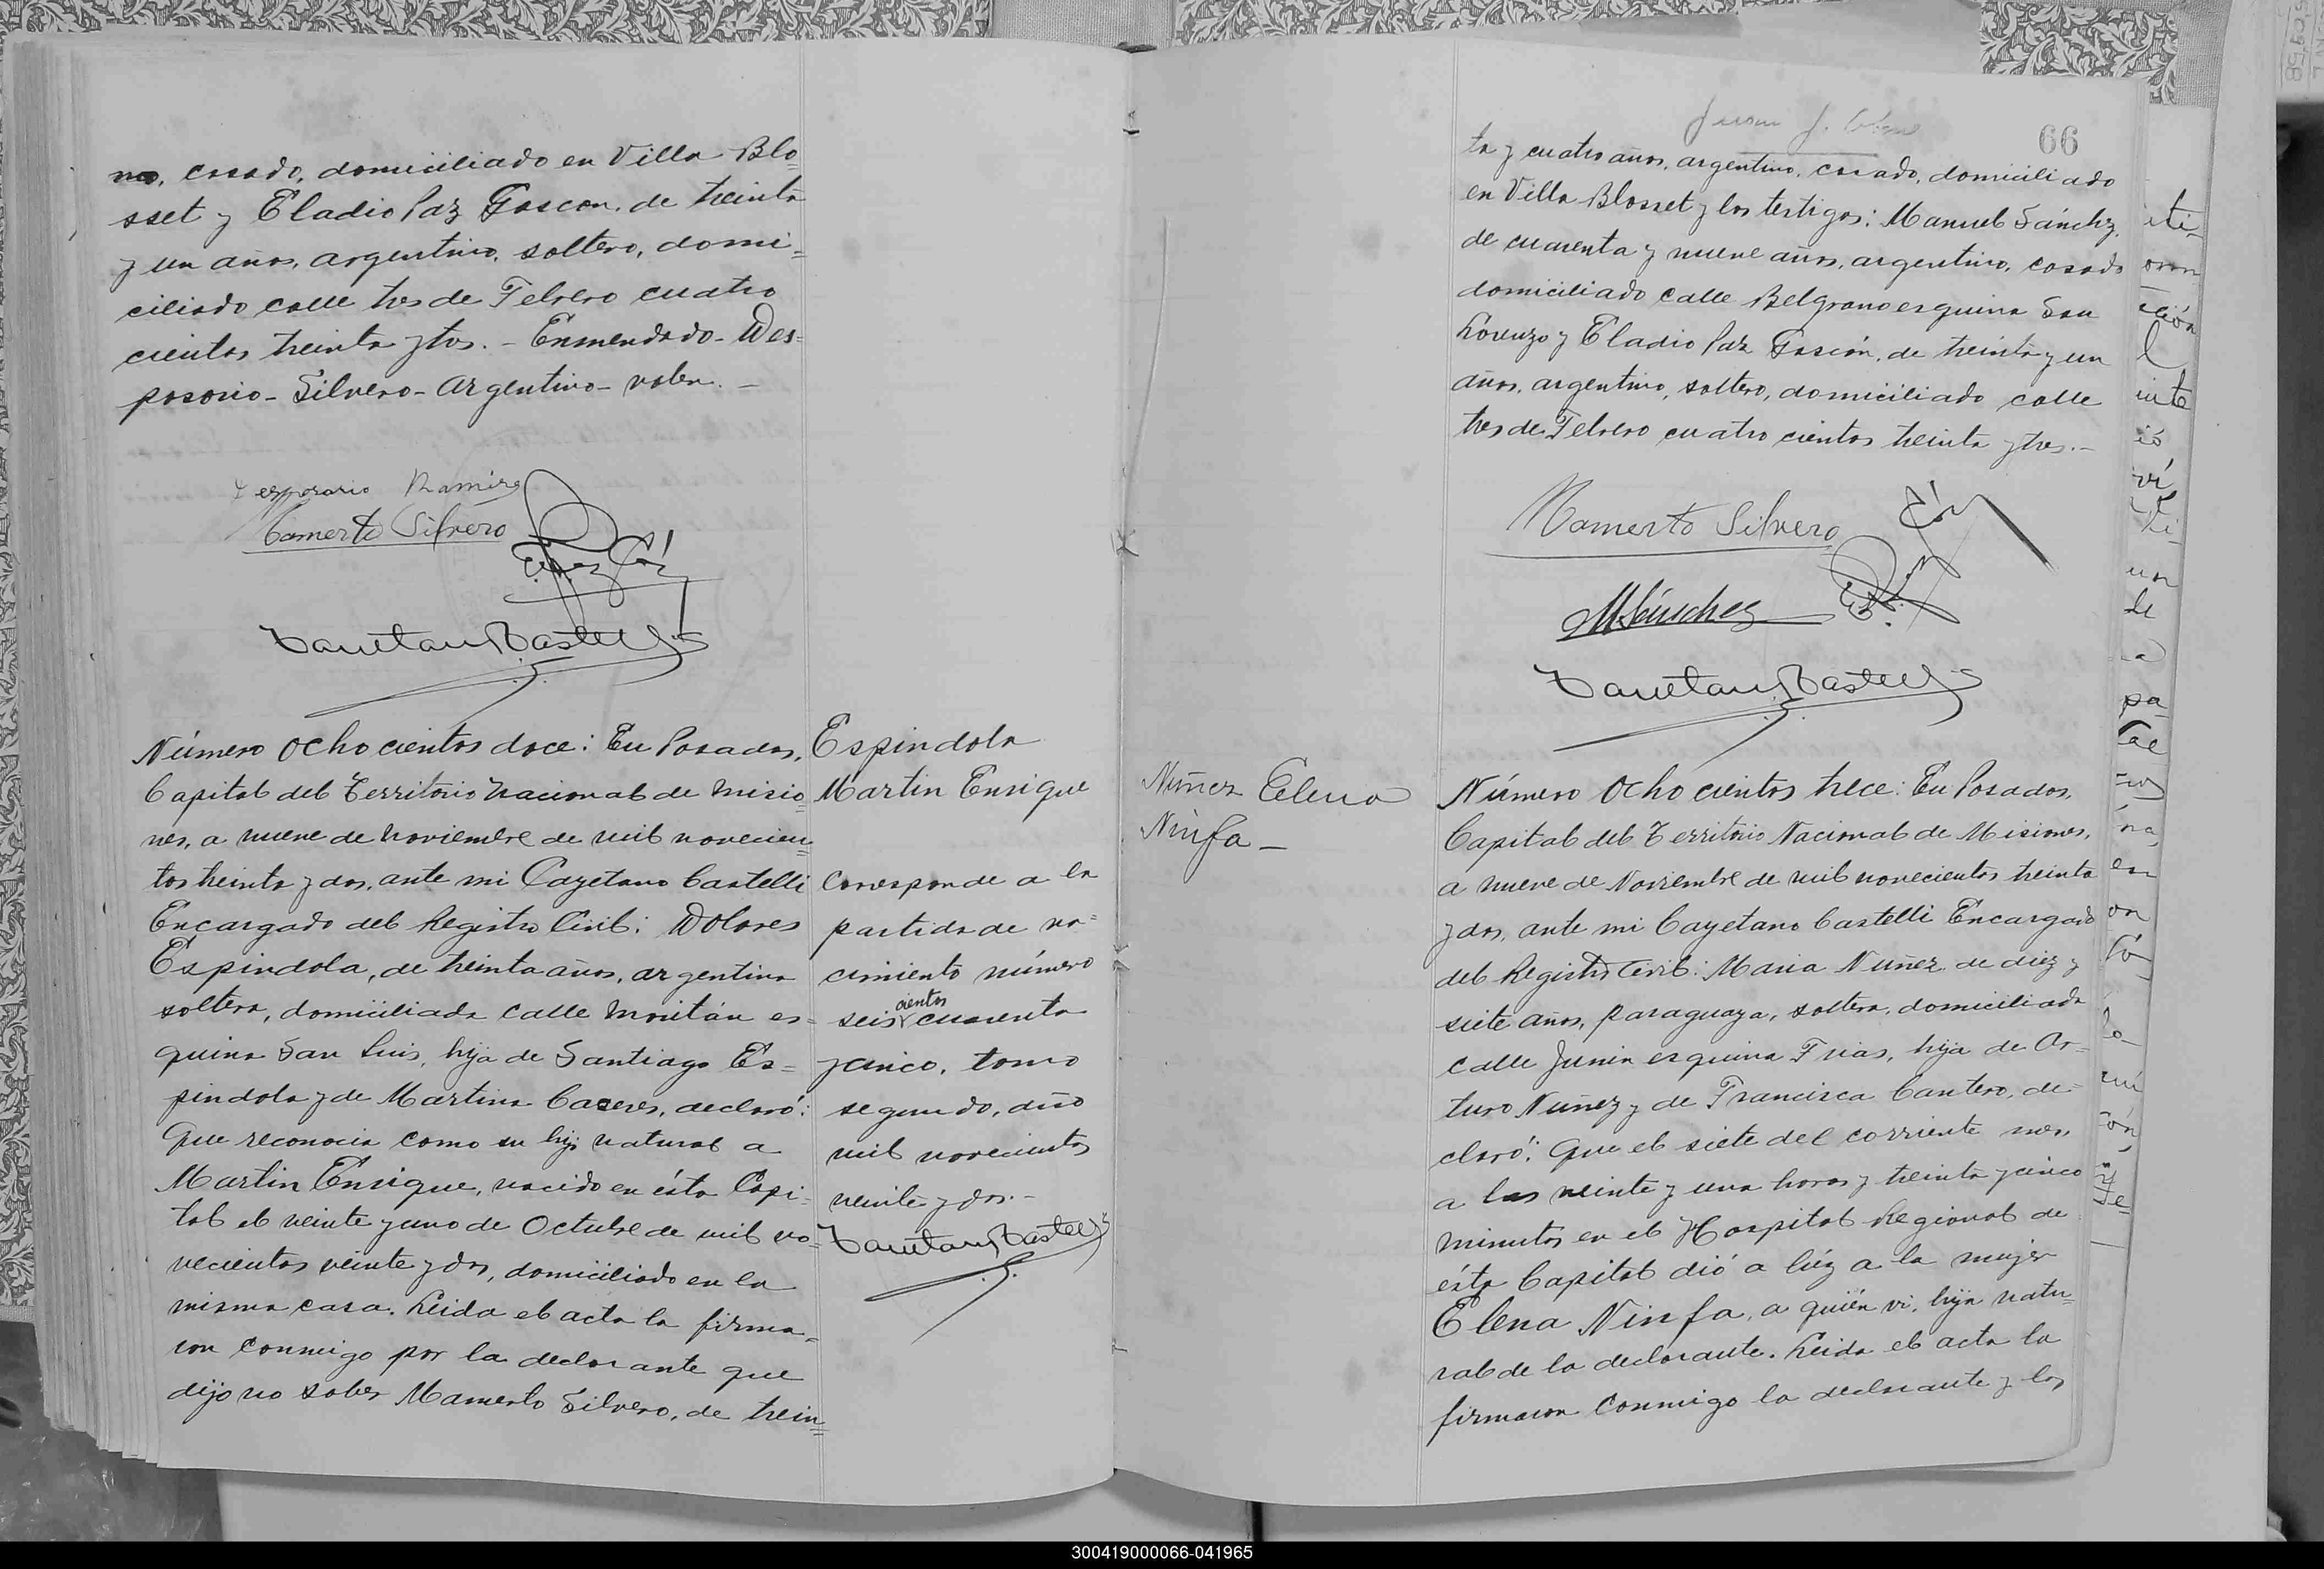 no, casado, domiciliado en Villa Blo=
sset y Eladio Paz Gascon, de treinta
y un años, argentino, soltero, domi=
ciliado calle tres de Febrero cuatro
cientos treinta y tres. - Enmendado - Des=
posorio - Silvero - argentino - valen. -
Desposorio Ramirez
Mamerto Silvero
Cayetano Castelli
Número Ochocientos doce: En Posadas,
Capital del Territorio Nacional de Misio
nes, a nueve de Noviembre de mil novecien=
tos treinta y dos, ante mi Cayetano Castelli
Encargado del Registro Civil: Dolores
Espindola, de treinta años, argentina
soltera, domiciliada calle Moritán es=
quina San Luis, hija de Santiago Es=
pindola y de Martina Caceres, declaró:
Que reconocia como su hijo natural a
Martin Enrique, nacido en ésta Capi=
tal el veinte y uno de Octubre de mil no=
vecientos veinte y dos, domiciliado en la
misma casa. Leida el acta la firma=
ron conmigo por la declarante que
dijo no saber Mamerto Silvero, de trein=
Espindola
Martin Enrique
Corresponde a la
partida de na=
cimiento número
seis cientos cuarenta
y cinco, tomo
segundo, año
mil novecientos
veinte y dos. -
Cayetano Castelli
66
ta y cuatro años, argentino, casado, domiciliado
en Villa Blosset y los testigos: Manuel Sánchz,
de cuarenta y nueve años, argentino, casado
domiciliado calle Belgrano esquina San
Lorenzo y Eladio Paz Gascón, de treinta y un
años, argentino, soltero, domiciliado calle
tres de Febrero cuatro cientos treinta y tres. -
Mamerto Silvero
M Sánchez
Cayetano Castelli
Nuñez Elena
Ninfa -
Número Ochocientos trece: En Posadas,
Capital del Territorio Nacional de Misiones,
a nueve de Noviembre de mil novecientos treinta
y dos, ante mi Cayetano Castelli Encargado
del Registro Civil: Maria Nuñez de diez y
siete años, paraguaya, soltera, domiciliada
calle Junin esquina Frias, hija de Ar=
turo Nuñez y de Francisca Cantero, de=
claró: Que el siete del corriente mes,
a las veinte y una horas y treinta y cinco
minutos en el Hospital Regional de
ésta Capital dió a lúz a la mujer
Elena Ninfa, a quién vi, hija natu=
ral de la declarante. Leida el acta la
firmaron conmigo la declarante y los
300419000066-041965